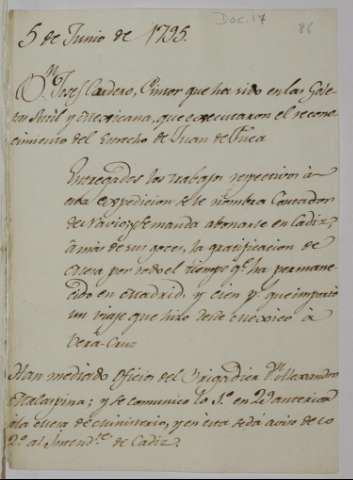 Doc. 17
86
5 de Junio de 1795.
Dn. Josef Cardero, Pintor que ha sido en las Gole-
tas Sutil y Mexicana, que executaron el recono-
cimiento del Estrecho de Juan de Fuca
Entregados los trabajos respectivos à
esta expedicion se le nombra Contador
de Navio, y se manda abonarse en Cadiz,
a más de sus goces, la gratificacion de
mesa por todo el tiempo qe. ha permane-
cido en Madrid, y cien ps. que importó
un viaje que hizo desde Mexico à
Vera-Cruz
Han mediado Oficios del Brigadier Dn. Alexandro
Malaspina; y se comunicó lo 1.o en 29 anterior
à la mesa de Ministerio, y en esta se dá aviso de lo
2.o al Intendte. de Cadiz.